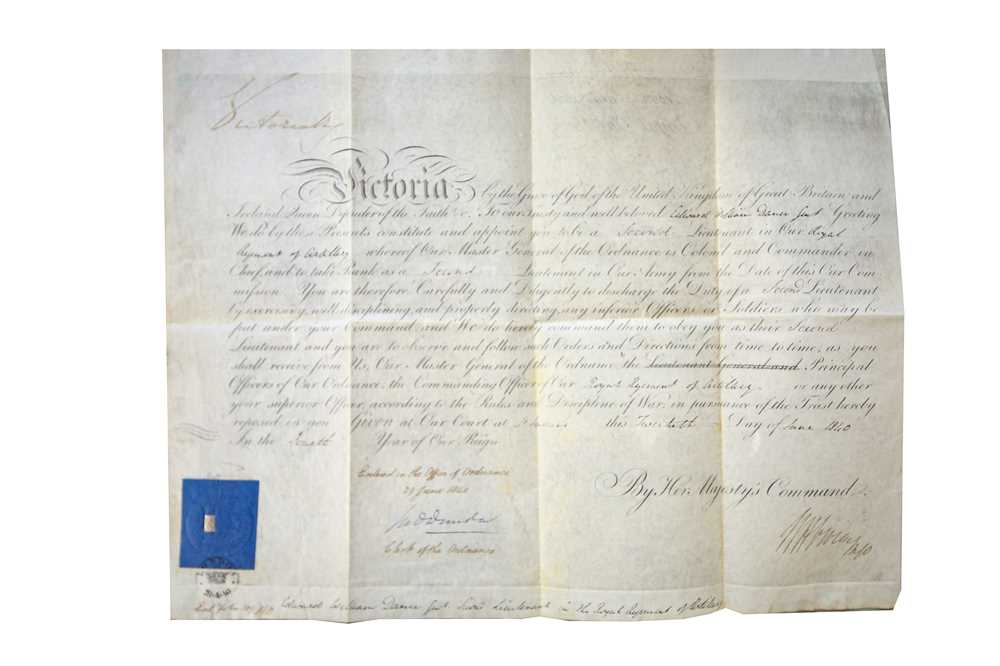 Victoria
Victoria by the Grace of God of the United Kingdom of Great Britain and
Ireland Queen Defender of the Faith &c. To our trusty and wellbeloved Edward William Gent Greeting
We do by these Presents constitute and appoint you to be a Second Lieutenant in Our Royal
Regiment of Artillery whereof Our Master General of the Ordnance is Colonel and Commander in
Chief, and to take Rank as a Second Lieutenant in Our Army from the Date of this Our Com-
mission. You are therefore Carefully and Diligently to discharge the Duty of a Second Lieutenant
by exercising, well disciplining, and properly directing, any inferior Officers or Soldiers who may be
put under your command, and We do hereby command them to obey you as their Second
Lieutenant and you are to observe and follow such Orders and Directions from time to time, as you
shall receive from Us, Our Master General of the Ordnance, the Lieutenant General and Principal
Officers of Our Ordnance, the Commanding Officer of Our Royal Regiment of Artillery or any other
your superior Officer, according to the Rules and Discipline of War, in pursuance of the Trust hereby
reposed in you Given at Our Court at this Twentieth Day of June 1840
In the Fourth Year of Our Reign
Entered in the Office of Ordnance
29 June 1840
Clerk of the Ordnance
By Her Majesty's Command
Edward William Gent Second Lieutenant in the Royal Regiment of Artillery